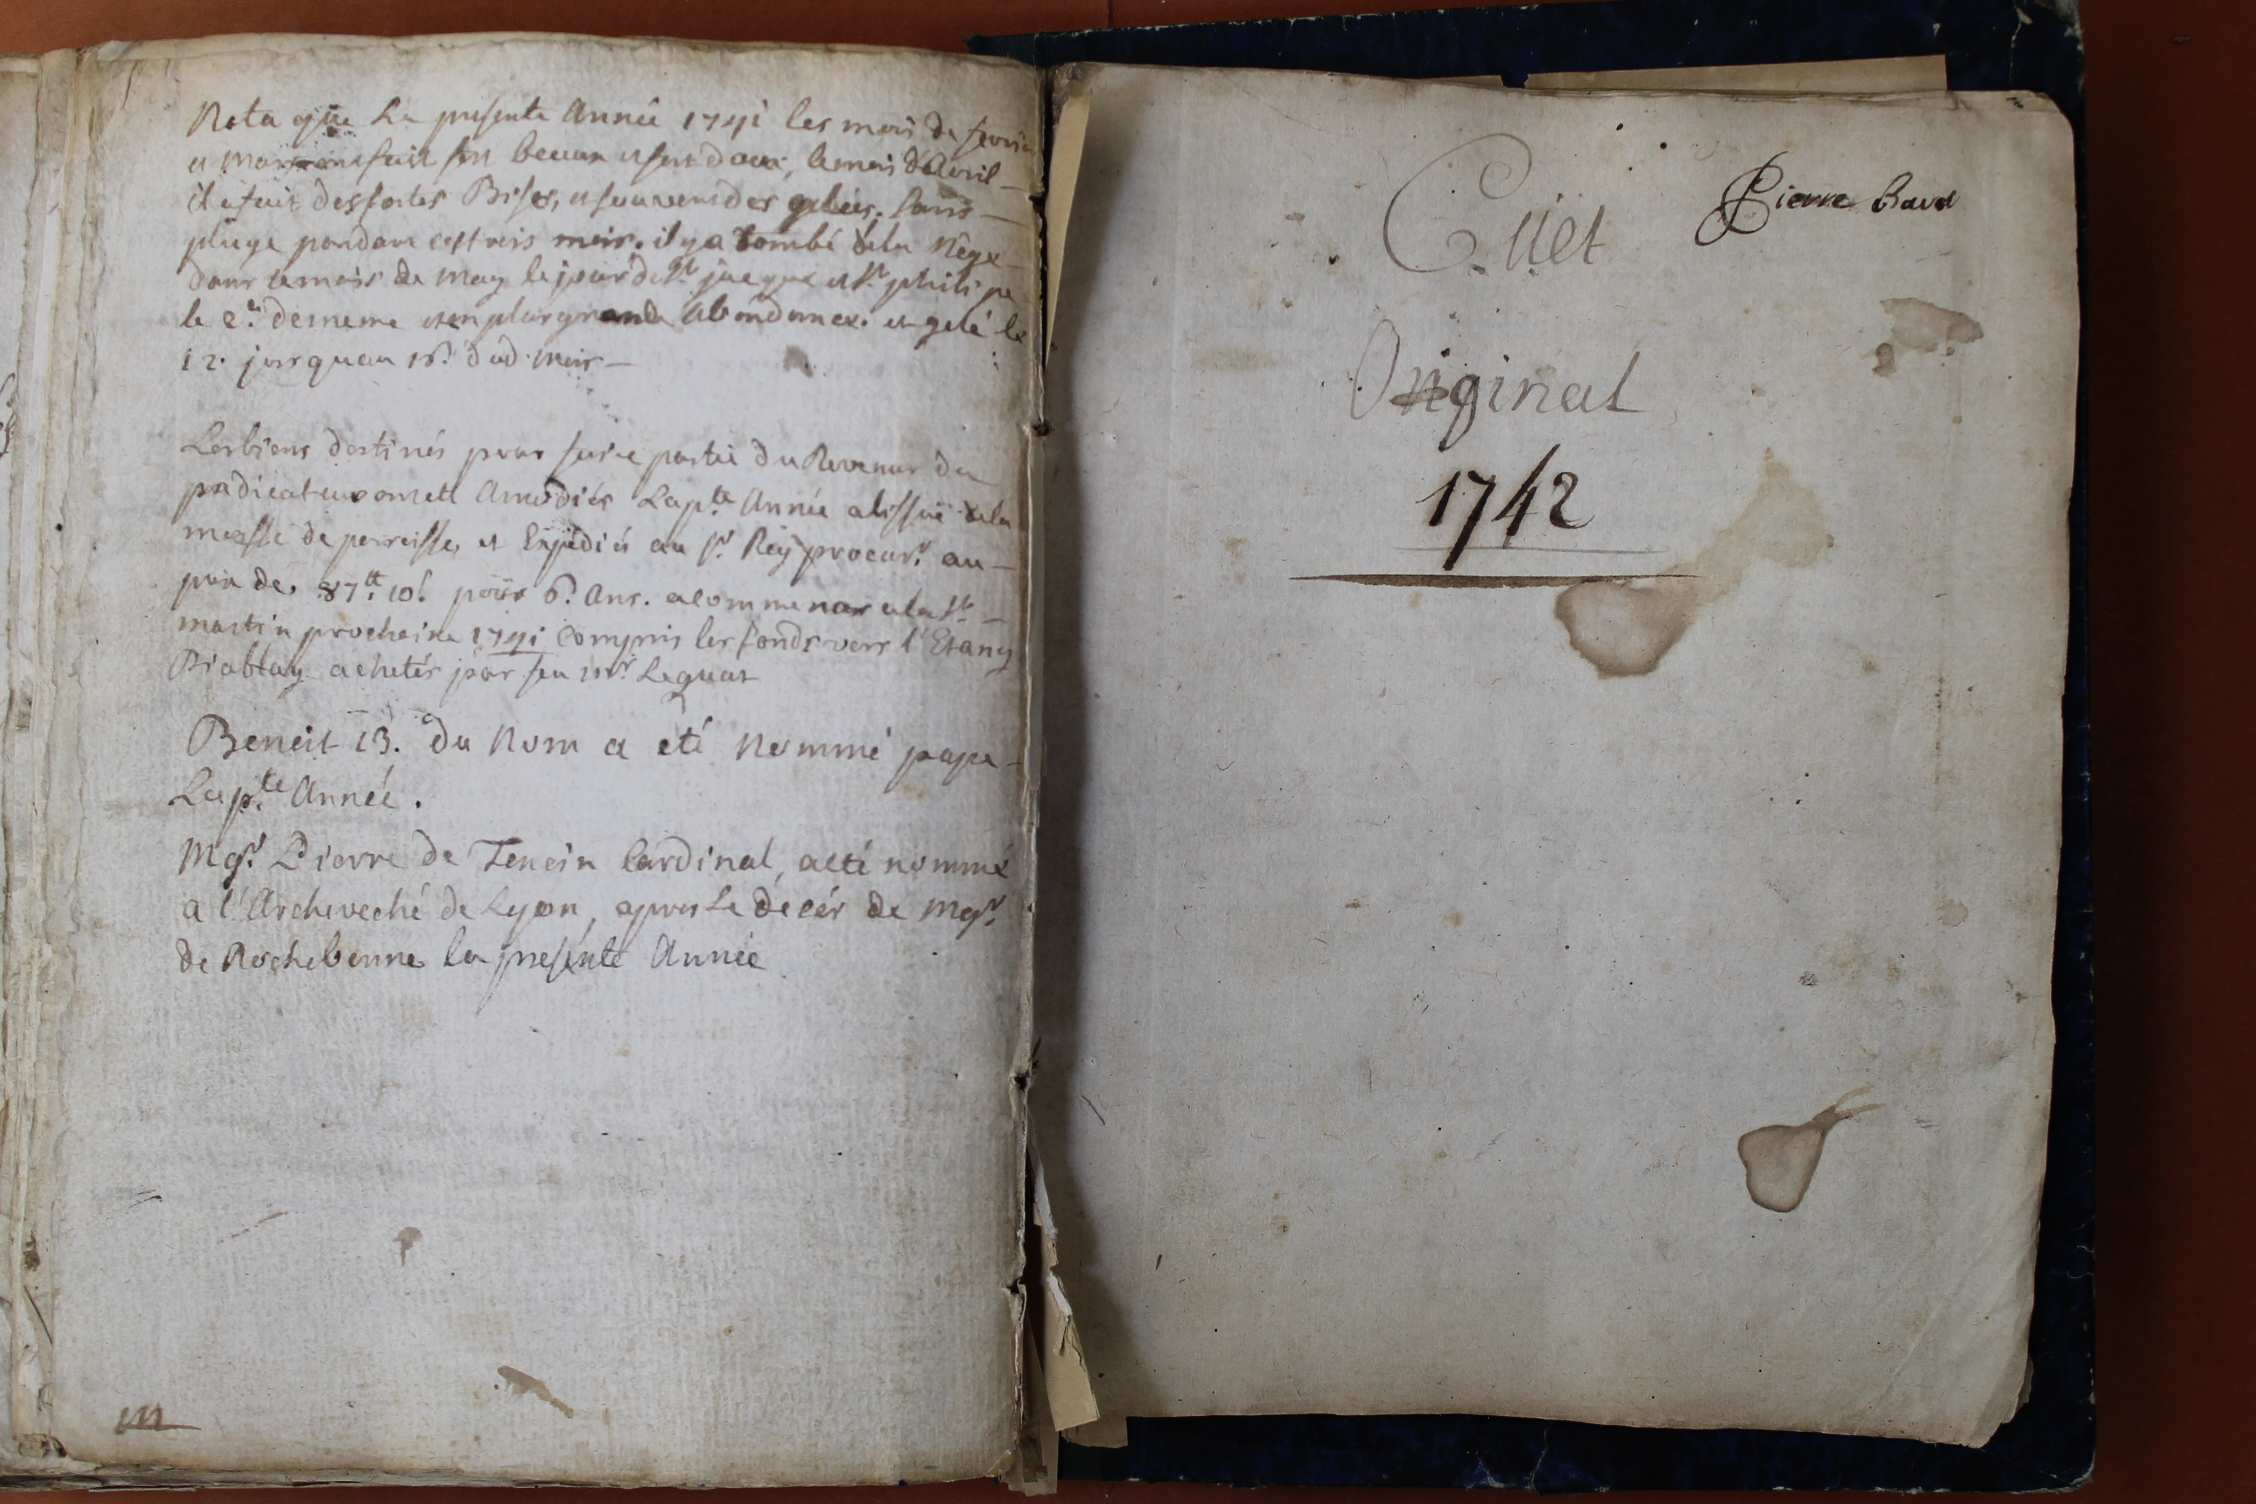 Nota que La presente Année 1741 les mois de fevrier
et mars ont fait fort beaux et fort doux, le mois d'Avril
il a fait des fortes Bises, et souvent des gelées. Sans
pluye pendant ces trois mois. il y a tombé de la Nêge
dans le mois de may le jour de St. jacque et St. philipe
le 2e. de meme et en plus grande abondance. et gelé le
12. jusquau 16. dud. mois
Les biens destinés pour faire partie du Revenus du
predicateur ont eté Amodiés Lapte. Année a lissüe de la
messe de parroisse, et Expediés au Sr. Rey procur. au
prix de 87tt. 10s. pour 6. ans. a commencer a la St.
martin prochaine 1741 compris les fonds vers l'Etang
Biablay achetés par feu Mr. Leguat
Benoit 13. du Nom a eté Nommé pape
Lapte. Année.
Mgr. Pierre de Tencin Cardinal, a eté nommé
a l'Archeveché de Lyon, apres le décés de Mgr.
de Rochebonne la presente Année
m
Cuet
Pierre
Original
1742